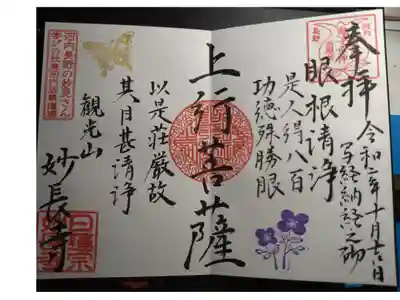 奉拝
令和二年十月十六日
写経納経之砌
眼根清浄
是人得八百
功徳殊勝眼
上行菩薩
以是荘厳故
其目甚清浄
観光山
妙長寺
河内長野の妙見さん